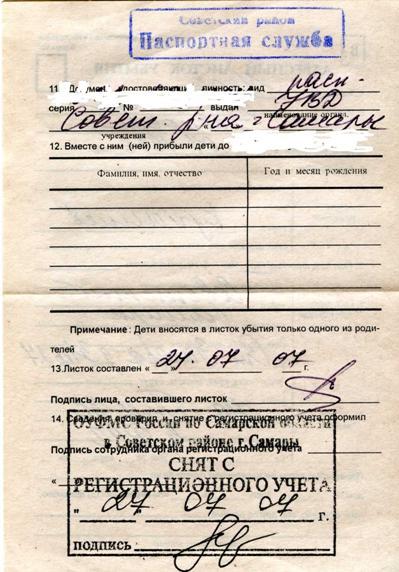 Советский район
Паспортная служба
11. Документ, удостоверяющий личность: вид расп-
серия № выдан УВД
наименование органа,
Совет. р-на г. Самары
учреждения
12. Вместе с ним (ней) прибыли дети до
Фамилия, имя, отчество Год и месяц рождения
Примечание: Дети вносятся в листок убытия только одного из роди-
телей
13.Листок составлен « 27 » 07 07 г.
Подпись лица, составившего листок
14. Сведения проверил и снятие с регистрационного учета оформил
ОУФМС России по Самарской области
в Советском районе г. Самары
Подпись сотрудника органа регистрационного учета
СНЯТ С
РЕГИСТРАЦИОННОГО УЧЕТА
" 27 " 07 07 г.
ПОДПИСЬ